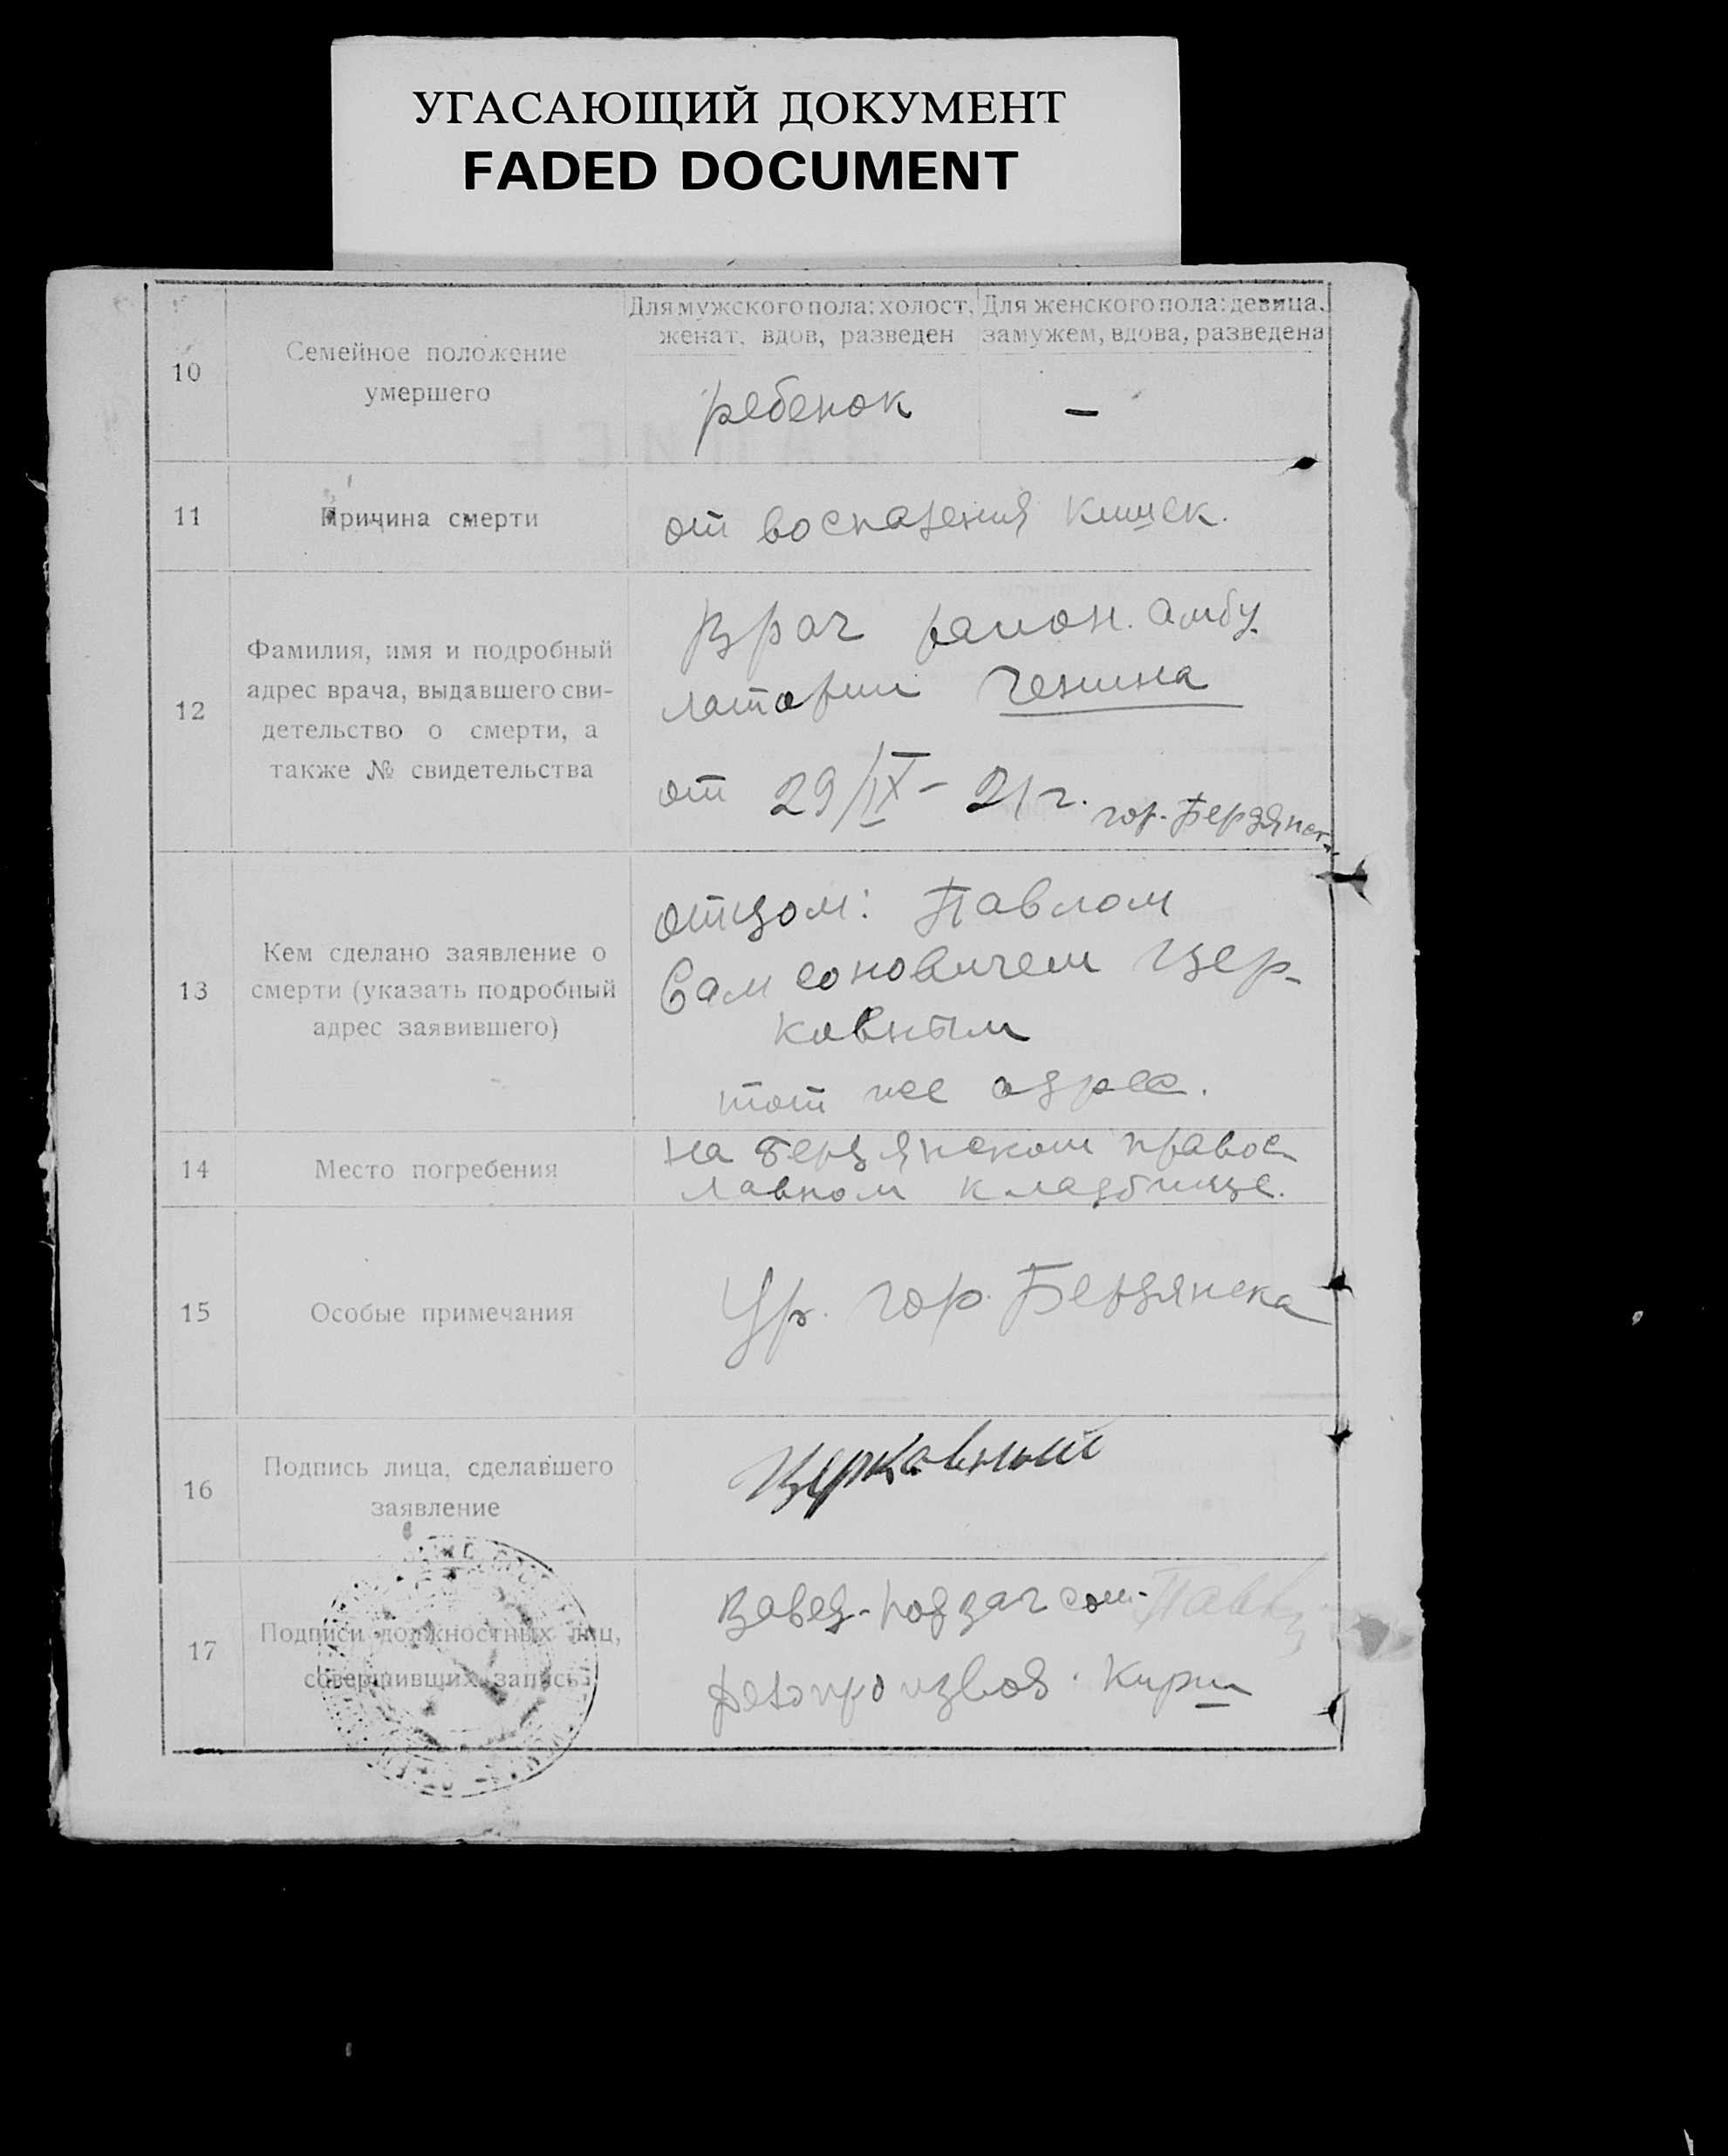 УГАСАЮЩИЙ ДОКУМЕНТ
FADED DOCUMENT
10
Семейное положение
умершего
Для мужского пола: холост,
женат, вдов, разведен
Для женского пола: девица,
замужем, вдова, разведена
ребенок
—
11
Причина смерти
от воспаления кишек.
12
Фамилия, имя и подробный
адрес врача, выдавшего сви-
детельство о смерти, а
также № свидетельства
Врач район. амбу-
латории
от 29/IX – 21 г. гор. Бердянск
13
Кем сделано заявление о
смерти (указать подробный
адрес заявившего)
отцом: Павлом
Самсоновичем Цер-
ковным
тот же адрес.
14
Место погребения
на Бердянском правос
лавном кладбище.
15
Особые примечания
Ур. гор. Бердянска
16
Подпись лица, сделавшего
заявление
Церковный
17
Подписи должностных лиц,
совершивших запись
Завед. подзагсом
делопроизвод.